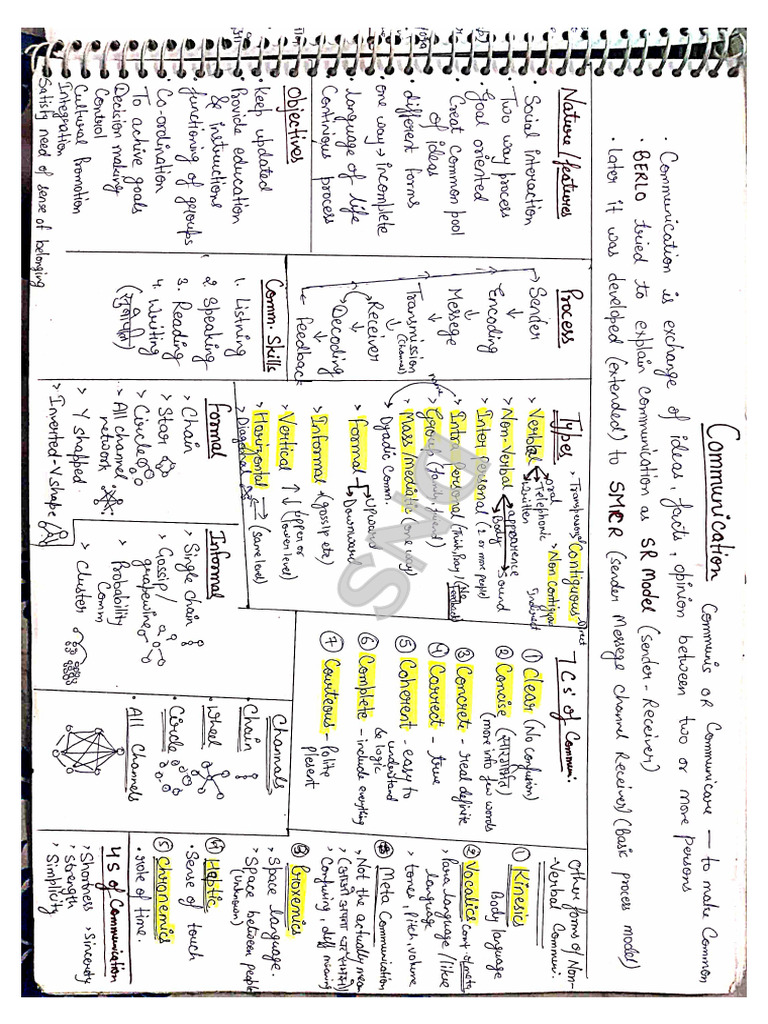 Communication Communis OR Communicare — to make Common
• Communication is exchange of ideas, facts, opinion between two or more persons
• BERLO tried to explain communication as SR Model (sender - Receiver)
• later it was developed (extended) to SMCR (sender Messege channel Receiver) (basic process model)
Nature/features
• Social interaction
• Two way process
• Goal oriented
• Creat common pool
of ideas
• different forms
• one way → incomplete
• language of life
• Continious process
Objectives
• Keep updated
• Provide education
& instructions
• functioning of groups
• Co-ordination
• To achive goals
• Decision making
• Control
• Cultural Promotion
• Integration
Satisfy need of sense of belonging
Process
Sender
↓
Encoding
↓
Messege
↓
Transmission
(channel)
↓
Receiver
↓
Decoding
↓
feedback
Comm. Skills
1. Listning
2. Speaking
3. Reading
4. Writing
Types
> Verbal
oral
Telephonic
Written
> Contiguous
Direct
> Non Contiguous
Indirect
> Non-Verbal
appearence
Body
Sound
> Inter Personal (2 or more people)
> Intra Personal
> Group
> Mass/mediatic (one way)
> Dyadic Comm.
> Formal
Upward
Downward
> Informal (gossip etc)
> Vertical ↑↓ (upper or
lower level)
> Horizontal (same level)
> Diagonal
Formal
> Chain
> Star
> Circle
> All channel
network
> Y shapped
> Inverted-V shape
Informal
> Single chain
> Gossip/
grapewing
> Probability
Comm
> Cluster
7 C's of Commun.
① Clear (No confusion)
② Concise
(more into few words
③ Concrete - real definite
④ Correct - true
⑤ Coherent - easy to
understand
& logic
⑥ Complete - include everything
⑦ Courteous - Polite
plesent
Channels
• Chain
• Wheel
• Circle
• All Channels
Other forms of Non-
-Verbal Commun.
① Kinesics
Body language
② Vocalics
• Para language / like
language
• tones, pitch, volume
Meta Communication
• Not the actually mean
• Confusing, diff meaning
③ Proxemics
> Space language.
> Space between people
(unknown)
④ Heptic
• Sense of touch
⑤ Chronemics
• role of time.
4 S of Communication
> Shortness > Sincerety
> Strength
> Simplicity
SMD